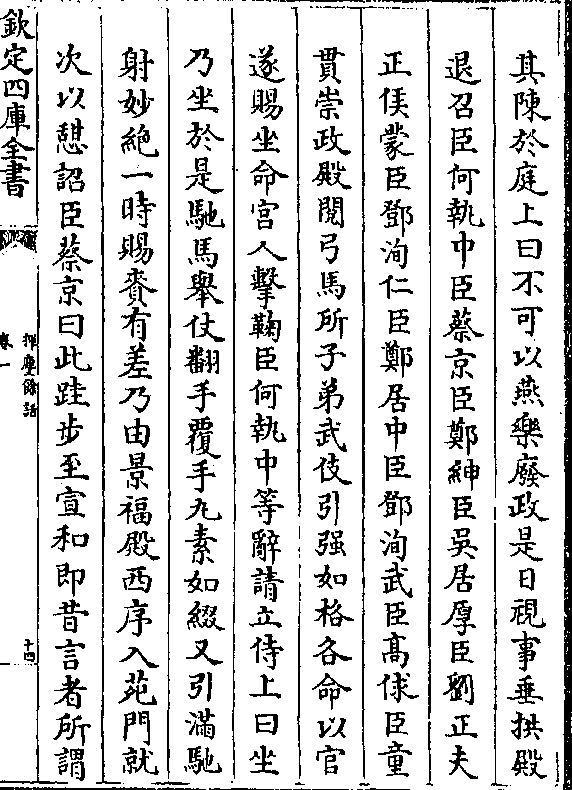 其陳於庭上曰不可以燕樂廢政是日視事垂拱殿
退召臣何執中臣蔡京臣鄭紳臣吳居厚臣劉正夫
正侯蒙臣鄧洵仁臣鄭居中臣鄧洵武臣髙俅臣童
貫崇政殿閱弓馬所子弟武伎引强如格各命以官
遂賜坐命宫人擊鞠臣何執中等辭請立侍上曰坐
乃坐於是馳馬舉仗翻手覆手九素如綴又引滿馳
射妙絶一時賜賚有差乃由景福殿西序入苑門就
次以憇詔臣蔡京曰此跬步至宣和即昔言者所謂
欽定四庫全書
揮麈餘話
卷一
十四